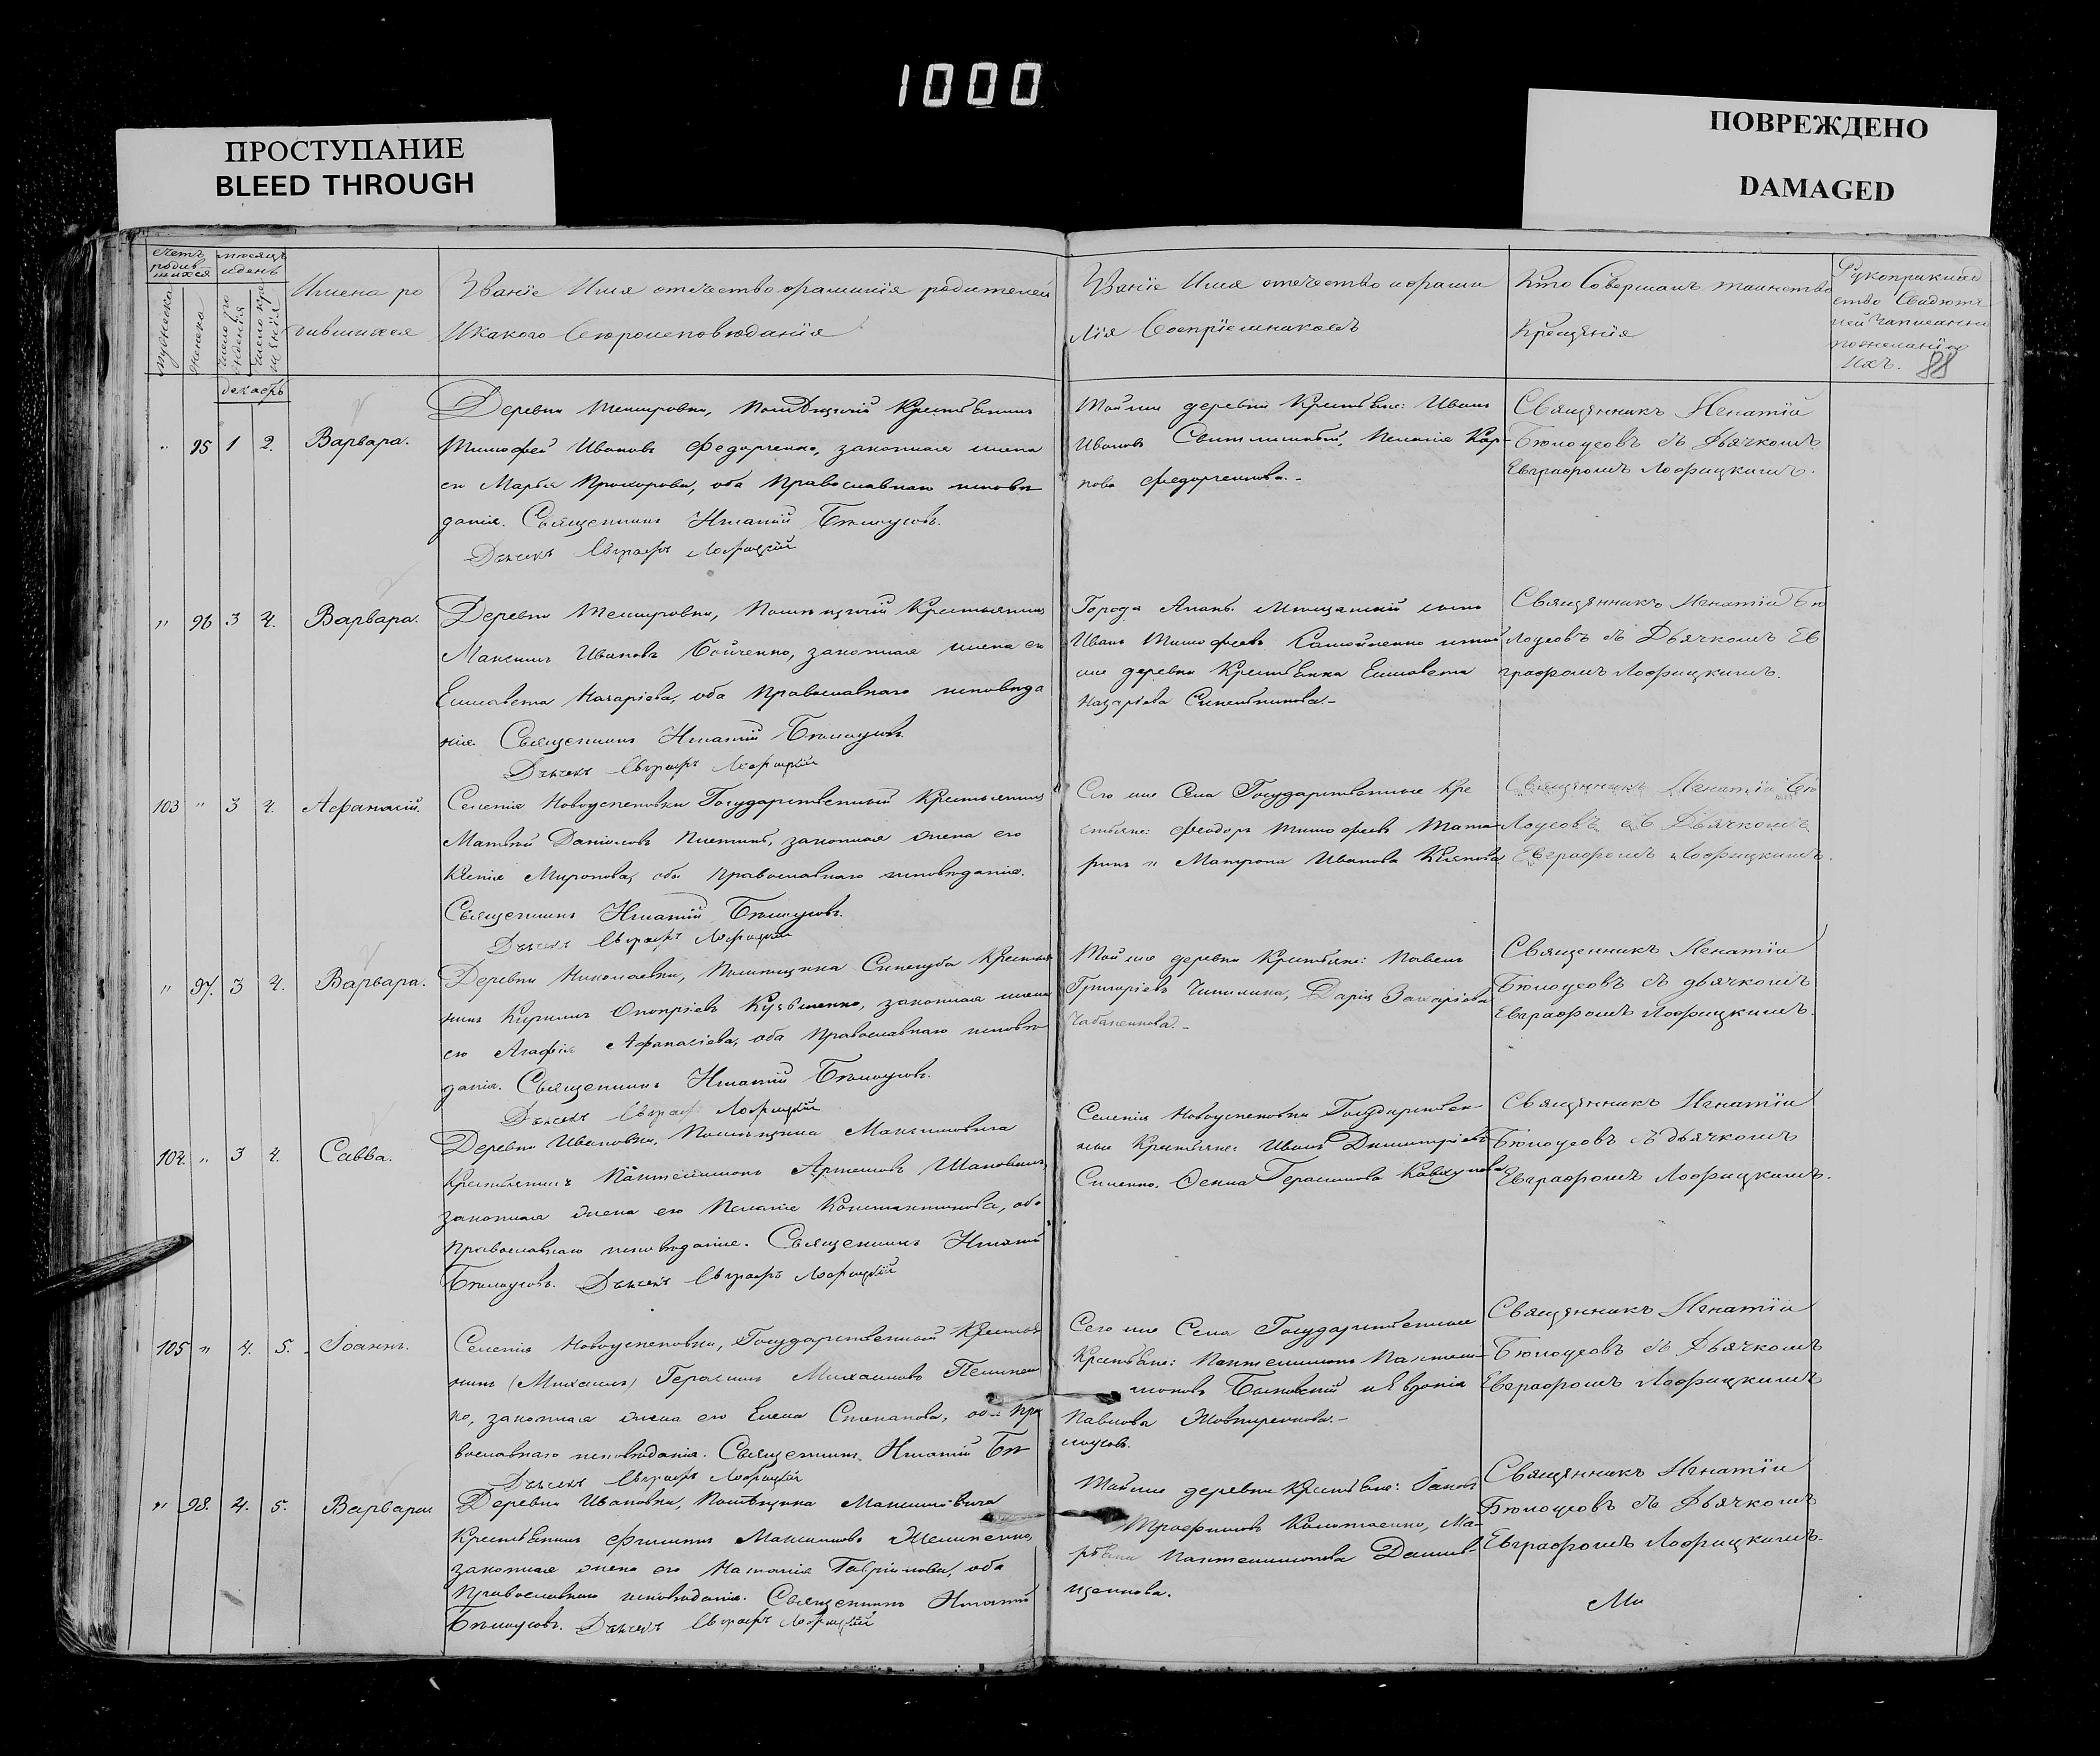 1000
ПРОСТУПАНИЕ
BLEED THROUGH
ПОВРЕЖДЕНО
DAMAGED
Счетъ родив-шихся
мѣсяцъ и день
мужеска
женска
число рожденія
число крещенія
Имена ро
дившихся
Званіе Имя отечество фамилія родителей
Икакого Вѣроисповѣданія
Званіе Имя отечество ифами
лія Воспріемниковъ
Кто Совершалъ таинство
Крещенія
Рукоприклад
ство Свидѣте
лей записи
пожеланію
Ихъ. 88
декабрь
" 95 1 2. Варвара.
Деревни Темировки, Помѣщичій Крестьянинъ
Тимофей Ивановъ Федорченко, законная жена
его Марѳа Прохорова, оба Православнаго исповѣ
данія. Священникъ Игнатій Бѣлоусовъ.
Дьячекъ Евграфъ Лофицкій
Той же деревни Крестьяне: Иванъ
Ивановъ Пелагія Кар-
пова Федорченкова.-
Священникъ Игнатій
Бѣлоусовъ съ Дьячкомъ
Евграфомъ Лофицкимъ.
" 96 3 4. Варвара.
Деревни Темировки, Помѣщичій Крестьянинъ
Максимъ Ивановъ Бойченко, законная жена его
Елисавета Назаріева, оба Православнаго исповѣда
нія. Священникъ Игнатій Бѣлоусовъ.
Дьячекъ Евграфъ Лофицкій
Города Мѣщанскій сынъ
Иванъ Тимофеевъ Самойленко и той
же деревни Крестьянка Елисавета
Назаріева
Священникъ Игнатій Бѣ
лоусовъ съ Дьячкомъ Ев
графомъ Лофицкимъ.
103 " 3 4. Афанасій.
Селенія Новоуспеновки Государственный Крестьянинъ
Матвѣй Даніиловъ законная жена его
Ксенія Миронова, оба Православнаго исповѣданія.
Священникъ Игнатій Бѣлоусовъ.
Дьячекъ Евграфъ Лофицкій
Сего же Села Государственные Кре
стьяне: Феодоръ Тимофеевъ Тата-
ринъ и Матрона Иванова
Священникъ Игнатій Бѣ
лоусовъ съ Дьячкомъ
Евграфомъ Лофицкимъ.
" 97. 3 4. Варвара.
Деревни Николаевки, Помѣщика Синегуба Крестья
нинъ Кирилъ Онопріевъ Кузьменко, законная жена
его Агафія Афанасіева, оба Православнаго исповѣ
данія. Священникъ Игнатій Бѣлоусовъ.
Дьячекъ Евграфъ Лофицкій
Той же деревни Крестьяне: Павелъ
Григоріевъ Дарія Захаріева
Чабаненкова.-
Священникъ Игнатій
Бѣлоусовъ съ дьячкомъ
Евграфомъ Лофицкимъ.
104. " 3 4. Савва.
Деревни Ивановки, Помѣщика Максимовича
Крестьянинъ Пантелимонъ Артемовъ
законная жена его Пелагія Константинова, оба
Православнаго исповѣданія. Священникъ Игнатій
Бѣлоусовъ. Дьячекъ Евграфъ Лофицкій
Селенія Новоуспеновки Государствен-
ные Крестьяне: Иванъ Димитріевъ
Герасимова
Священникъ Игнатій
Бѣлоусовъ съ дьячкомъ
Евграфомъ Лофицкимъ.
105 " 4. 5. Іоаннъ.
Селенія Новоуспеновки, Государственный Крестья
нинъ (Михаилъ) Герасимъ Михаиловъ
ко, законная жена его Елена Степанова, оба Пра
вославнаго исповѣданія. Священникъ Игнатій Бѣ
лоусовъ.
Дьячекъ Евграфъ Лофицкій
Сего же Села Государственные
Крестьяне: Пантелимонъ Пантели-
моновъ и Евдокія
Павлова
Священникъ Игнатій
Бѣлоусовъ съ Дьячкомъ
Евграфомъ Лофицкимъ
" 98. 4. 5. Варвара
Деревни Ивановки, Помѣщика Максимовича
Крестьянинъ Филиппъ Максимовъ
законная жена его Наталія Гаврілова, оба
Православнаго исповѣданія. Священникъ Игнатій
Бѣлоусовъ. Дьячекъ Евграфъ Лофицкій
Той же деревни Крестьяне: Іаковъ
Трофимовъ Ма-
Пантелимонова
щенкова.
Священникъ Игнатій
Бѣлоусовъ съ Дьячкомъ
Евграфомъ Лофицкимъ.
Ми